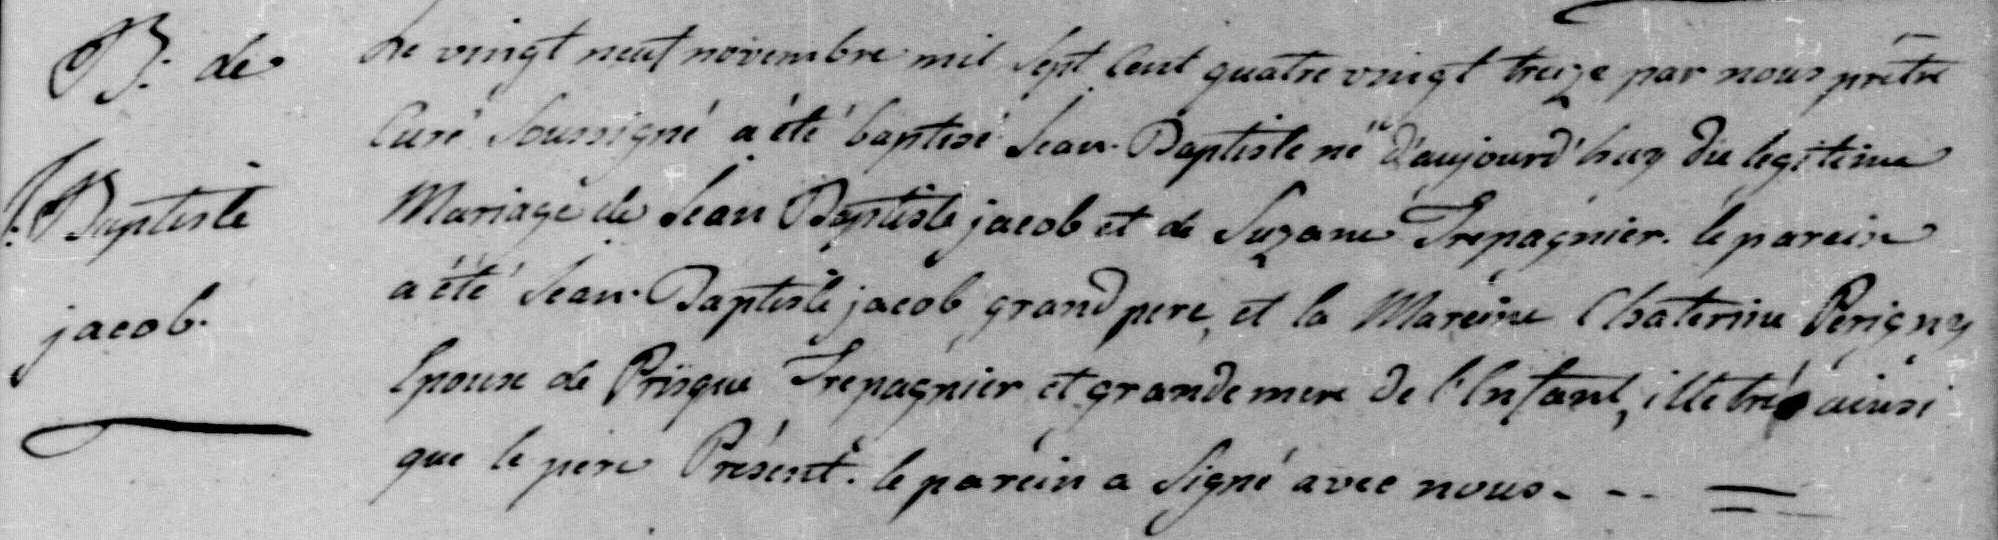 B. de
J. Baptiste
jacob.
Le vingt neuf novembre mil sept cent quatre vingt treize par nous prêtre
Curé soussigné a été baptisé Jean-Baptiste né d'aujourd'huy du legitime
Mariage de Jean Baptiste jacob et de Suzane Trepagnier. le parein
a été Jean-Baptiste jacob grand pere, et la Mareine Chaterine Perigny
Epouse de Prisque Trepagnier et grande mere de l'Enfant, illetré ainsi
que le pere Présent. le parein a signé avec nous. - - =